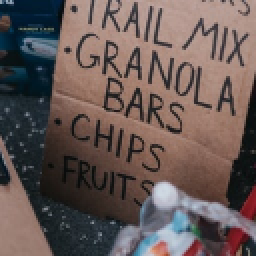 • TRAIL MIX
• GRANOLA
BARS
• CHIPS
• FRUITS